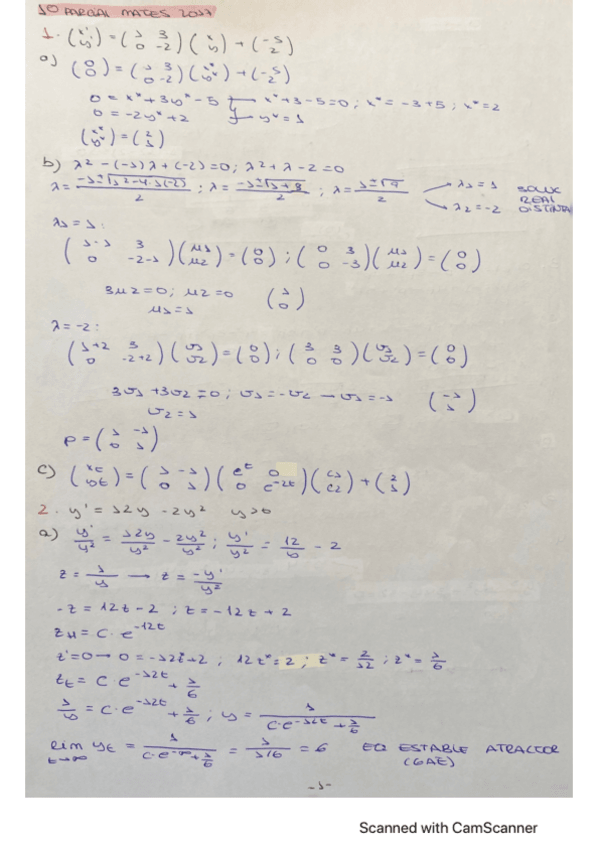 1º PARCIAL MATES 2017
1. (x' y') = (1 3 0 -2) (x y) + (-5 2)
a) (0 0) = (1 3 0 -2) (x* y*) + (-5 2)
0 = x* + 3y* - 5 x* + 3 - 5 = 0 ; x* = -3 + 5 ; x* = 2
0 = -2y* + 2 y* = 1
(x* y*) = (2 1)
b) λ² - (-1)λ + (-2) = 0 ; λ² + λ - 2 = 0
λ = -1±√1²-4·1(-2) / 2 ; λ = -1±√1+8 / 2 ; λ = -1±√9 / 2 → λ1 = 1 → λ2 = -2 SOLUC REAL DISTINTA
λ1 = 1 :
(1-1 3 0 -2-1) (μ1 μ2) = (0 0) ; (0 3 0 -3) (μ1 μ2) = (0 0)
3μ2 = 0 ; μ2 = 0 (1 0)
μ1 = 1
λ = -2 :
(1+2 3 0 -2+2) (v1 v2) = (0 0) ; (3 3 0 0) (v1 v2) = (0 0)
3v1 + 3v2 = 0 ; v1 = -v2 → v1 = -1 (-1 1)
v2 = 1
P = (1 -1 0 1)
c) (xt yt) = (1 -1 0 1) (e^t 0 0 e^-2t) (c1 c2) + (2 1)
2. y' = 12y - 2y² y>0
a) y'/y² = 12y/y² - 2y²/y² ; y'/y² = 12/y - 2
z = 1/y → z = -y'/y²
-z = 12z - 2 ; z = -12z + 2
zH = c · e^-12t
z' = 0 → 0 = -12z + 2 ; 12z* = 2 ; z* = 2/12 ; z* = 1/6
zt = c · e^-12t + 1/6
1/y = c · e^-12t + 1/6 ; y = 1 / c·e^-12t + 1/6
lim t→∞ yt = 1 / c·e^-∞ + 1/6 = 1 / 1/6 = 6 EQ ESTABLE ATRACTOR
(GAE)
-1-
Scanned with CamScanner